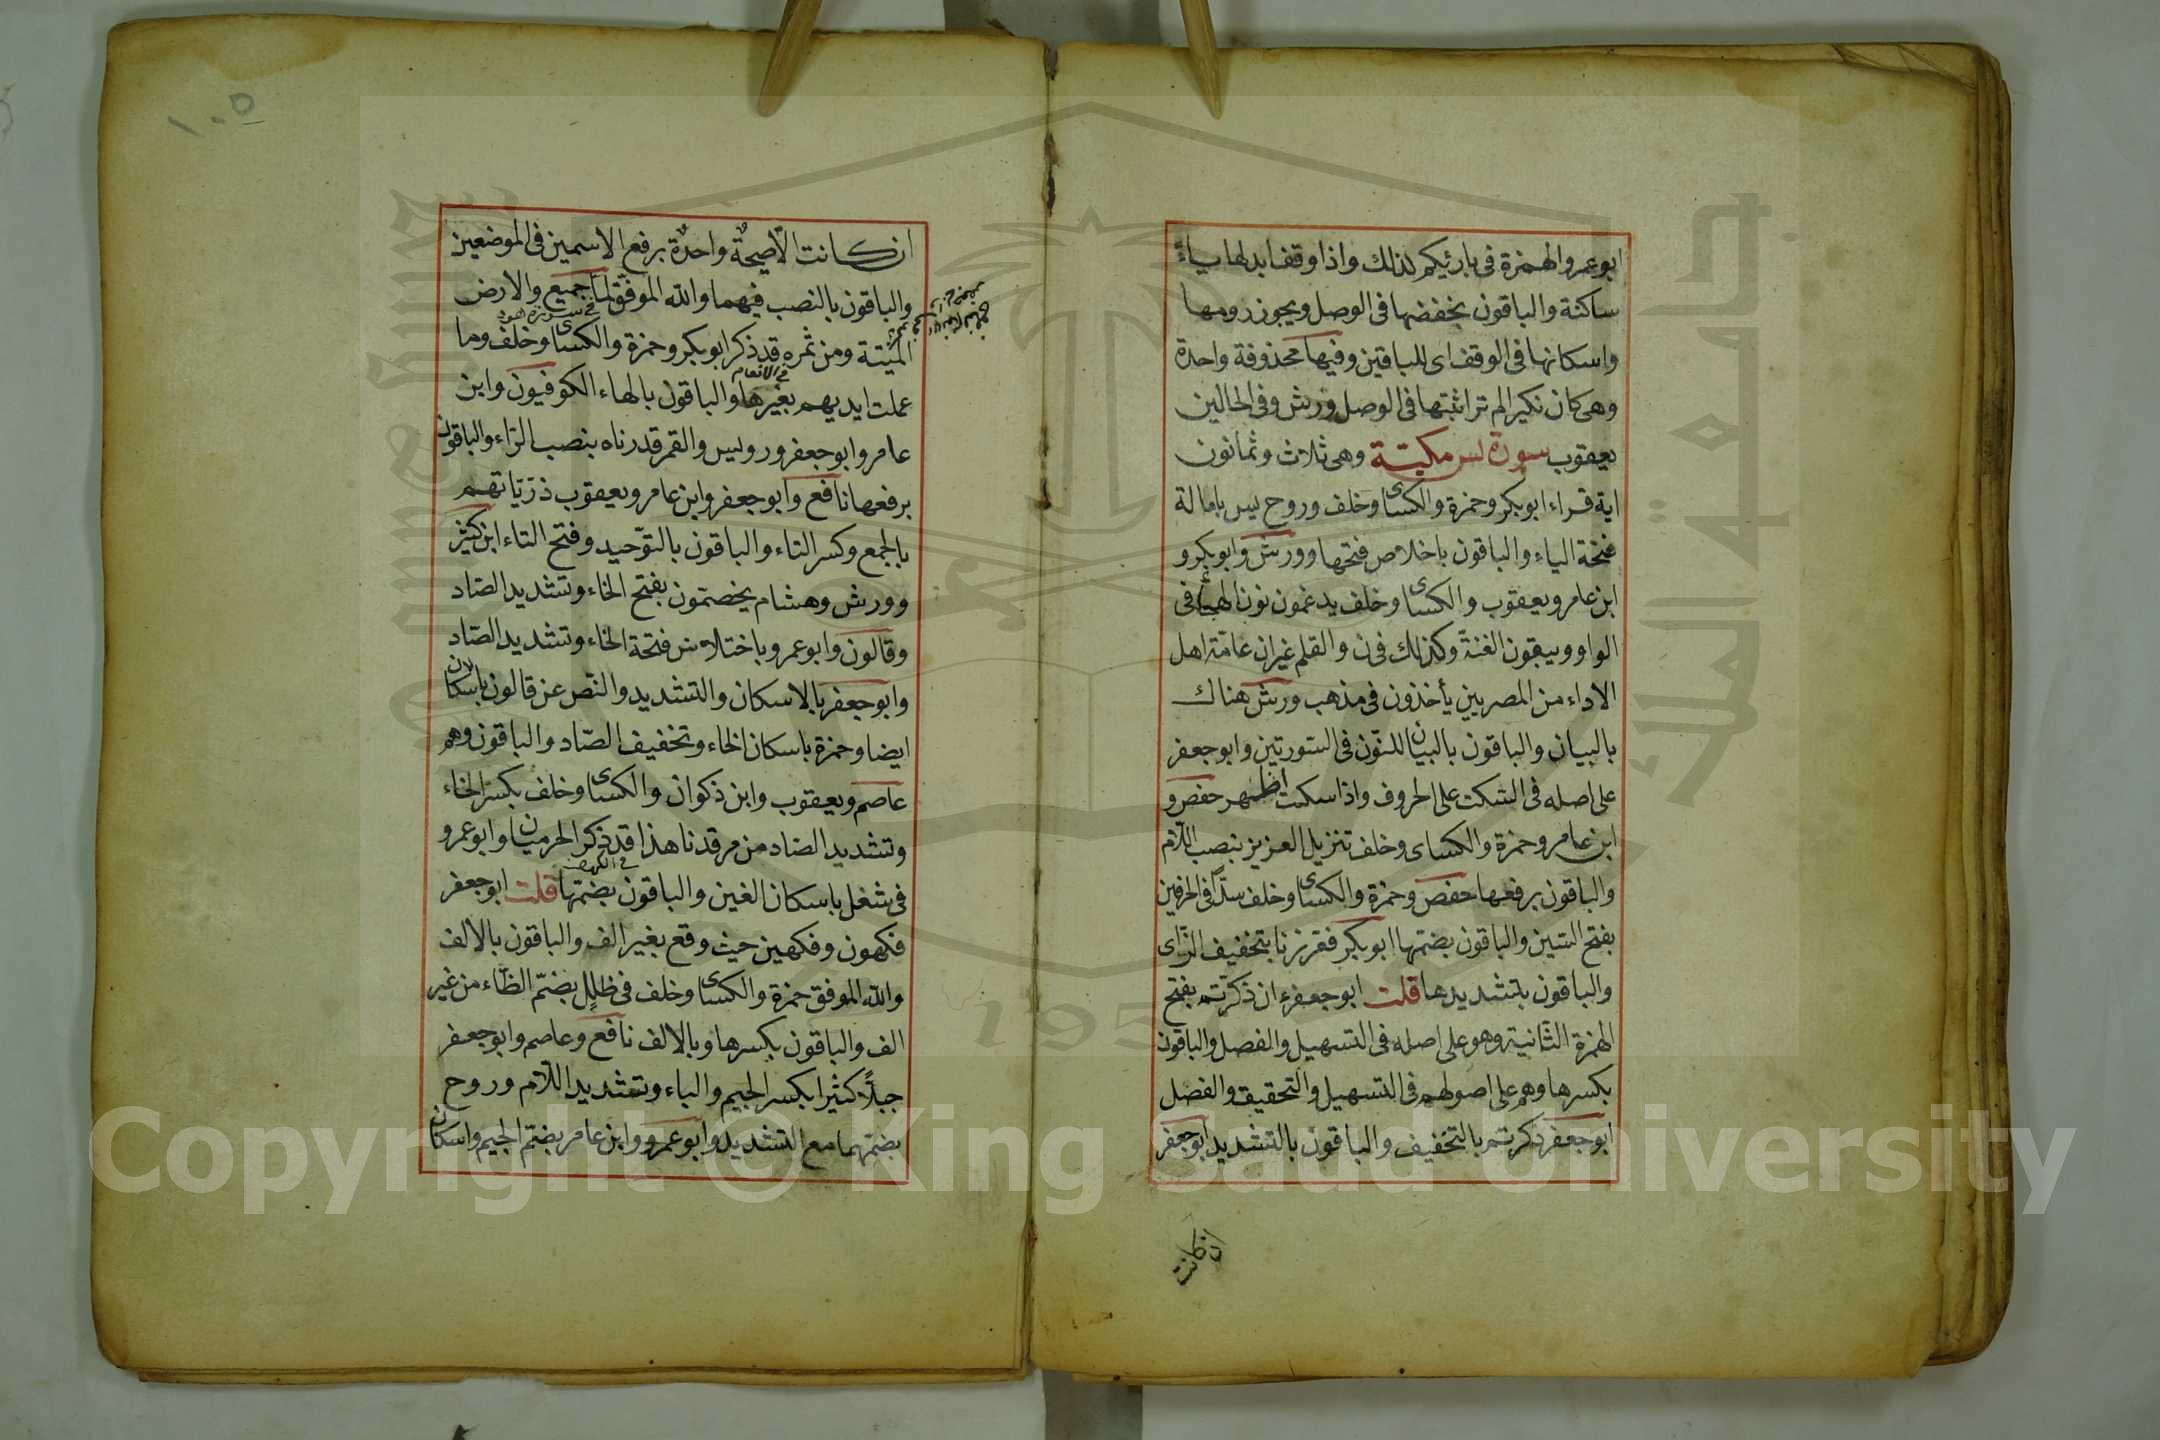 ابو عمرو الهمزة فى بارئيكم لذلك واذا وقفا بدلها ياءً
ساكنة والباقون بخفضها فى الوصل ويجوز رومها
واسكانها فى الوقف اى للباقين وفيها محذوفة واحدة
وهى كان نكير الم تر اثبتها فى الوصل ورش وفى الحالين
يعقوب سورة يس مكية وهى ثلاث وثمانون
اية قراء ابوبكر وحمزة والكساى وخلف وروح يس بامالة
فتحة الياء والباقون باخلاص فتحها وورش وابوبكر و
ابن عامر ويعقوب والكساى وخلف يدغمون نون الهجأ فى
الواو ويبقون الغنة وكذلك فى ن والقلم غير ان عامّة اهل
الاداء من المصريين يأخذون فى مذهب ورش هناك
بالبيان والباقون بالبيان للنّون فى السّورتين وابو جعفر
على اصله فى السّكت على الحروف واذا سكت اظهر حفص و
ابن عامر وحمزة والكساى وخلف تنزيل العزيز بنصب اللّام
والباقون برفعها حفص وحمزة والكساى وخلف سدًّا فى الحرفين
بفتح السّين والباقون بضمّها ابوبكر فعززنا بتخفيف الزّاى
والباقون بتشديدها قلت ابو جعفر ءان ذكرتم بفتح
الهمزة الثّانية وهو على اصله فى التسهيل والفصل والباقون
بكسرها وهم على اصولهم فى التسهيل والتحقيق والفصل
ابو جعفر ذكرتم بالتخفيف والباقون بالتشديد ابو جعفر
ان كانت
ان كانت الّا صيحةٌ واحدةٌ برفع الاسمين فى الموضعين
والباقون بالنصب فيهما والله الموفق لمّا جميع والارض
فى سورة هود
الميّتة ومن ثمره قد ذكر ابوبكر وحمزة والكساى وخلف وما
فى الانعام
عملت ايديهم بغيرها والباقون بالهاء الكوفيون وابن
عامر وابو جعفر ورويس والقمر قدرناه بنصب الرّاء والباقون
برفعها نافع وابو جعفر وابن عامر ويعقوب ذرّيّاتهم
بالجمع وكسر التاء والباقون بالتّوحيد وفتح التاء ابن كثير
وورش وهشام يخصّمون بفتح الخاء وتشديد الصّاد
وقالون وابو عمرو باختلاس فتحة الخاء وتشديد الصّاد
وابو جعفر بالاسكان والتشديد والنّص عن قالون باسكان
ايضا وحمزة باسكان الخاء وتخفيف الصّاد والباقون وهم
عاصم ويعقوب وابن ذكوان والكساى وخلف بكسر الخاء
وتشديد الصّاد من مرقدنا هذا قد ذكر الحرميان وابو عمرو
فى الكهف
فى شغل باسكان الغين والباقون بضمّها قلت ابو جعفر
فكهون وفكهين حيث وقع بغير الف والباقون بالالف
والله الموفق حمزة والكساى وخلف فى ظللٍ بضمّ الظّاء من غير
الف والباقون بكسرها وبالالف نافع وعاصم وابو جعفر
جبلًّا كثيرا بكسر الجيم والباء وتشديد اللّام وروح
بضمّهما مع التشديد وابو عمرو وابن عامر بضمّ الجيم واسكان
١٠٥
Copyright © King Saud University